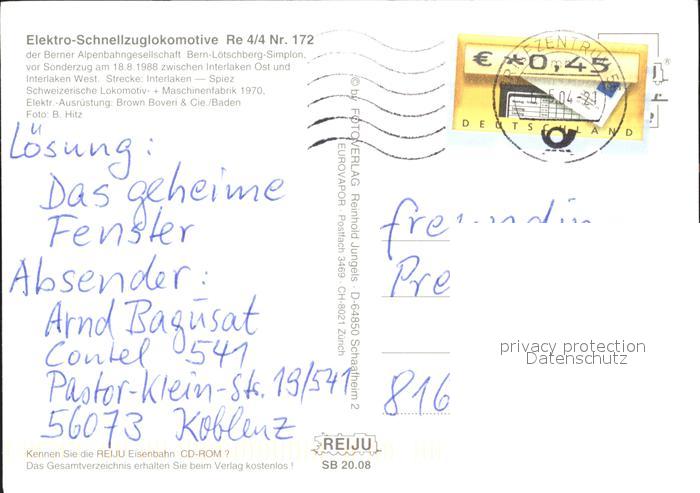 Elektro-Schnellzuglokomotive Re 4/4 Nr. 172
der Berner Alpenbahngesellschaft Bern-Lötschberg-Simplon,
vor Sonderzug am 18.8.1988 zwischen Interlaken Ost und
Interlaken West. Strecke: Interlaken — Spiez
Schweizerische Lokomotiv- + Maschinenfabrik 1970,
Elektr.-Ausrüstung: Brown Boveri & Cie./Baden
Foto: B. Hitz
Lösung:
Das geheime
Fenster
Absender:
Arnd Bagusat
Contel 541
Pastor-Klein-Str. 19/541
56073 Koblenz
Kennen Sie die REIJU Eisenbahn CD-ROM ?
Das Gesamtverzeichnis erhalten Sie beim Verlag kostenlos !
REIJU
SB 20.08
© by FOTOVERLAG Reinhold Jungels · D-64850 Schaafheim 2
EUROVAPOR · Postfach 3469 · CH-8021 Zürich
€ *0,45
BRIEFZENTRUM
5.04-21
DEUTSCHLAND
freundin
Pre
816
privacy protection
Datenschutz